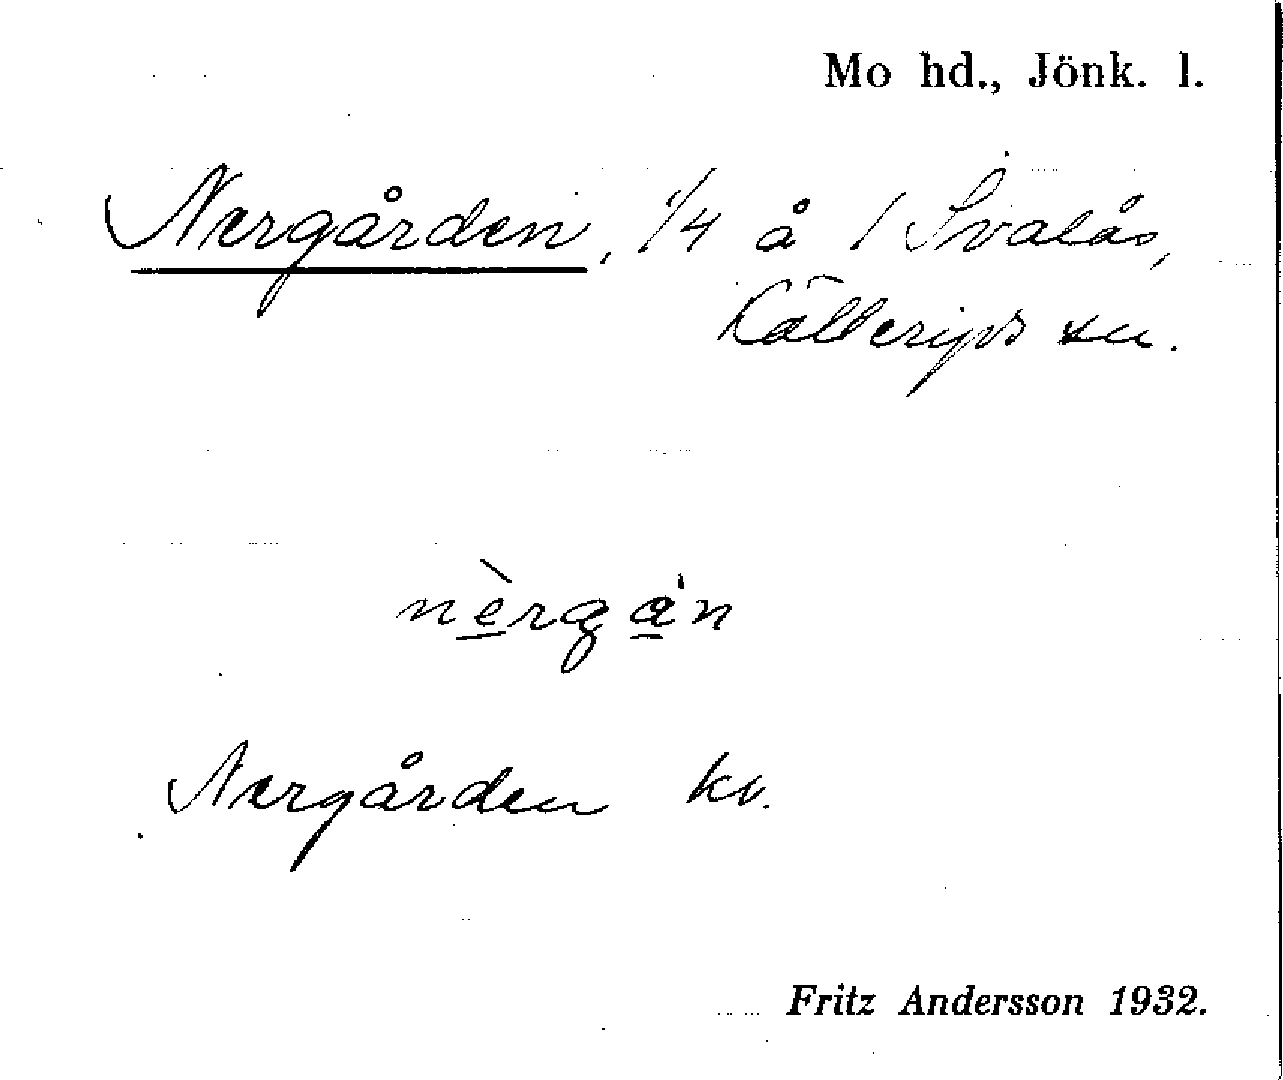 Mo hd., Jönk. l.
Nergården, 1/4 å 1 Svalås,
Källerips sn.
nèrgán
Nergården kv.
Fritz Andersson 1932.